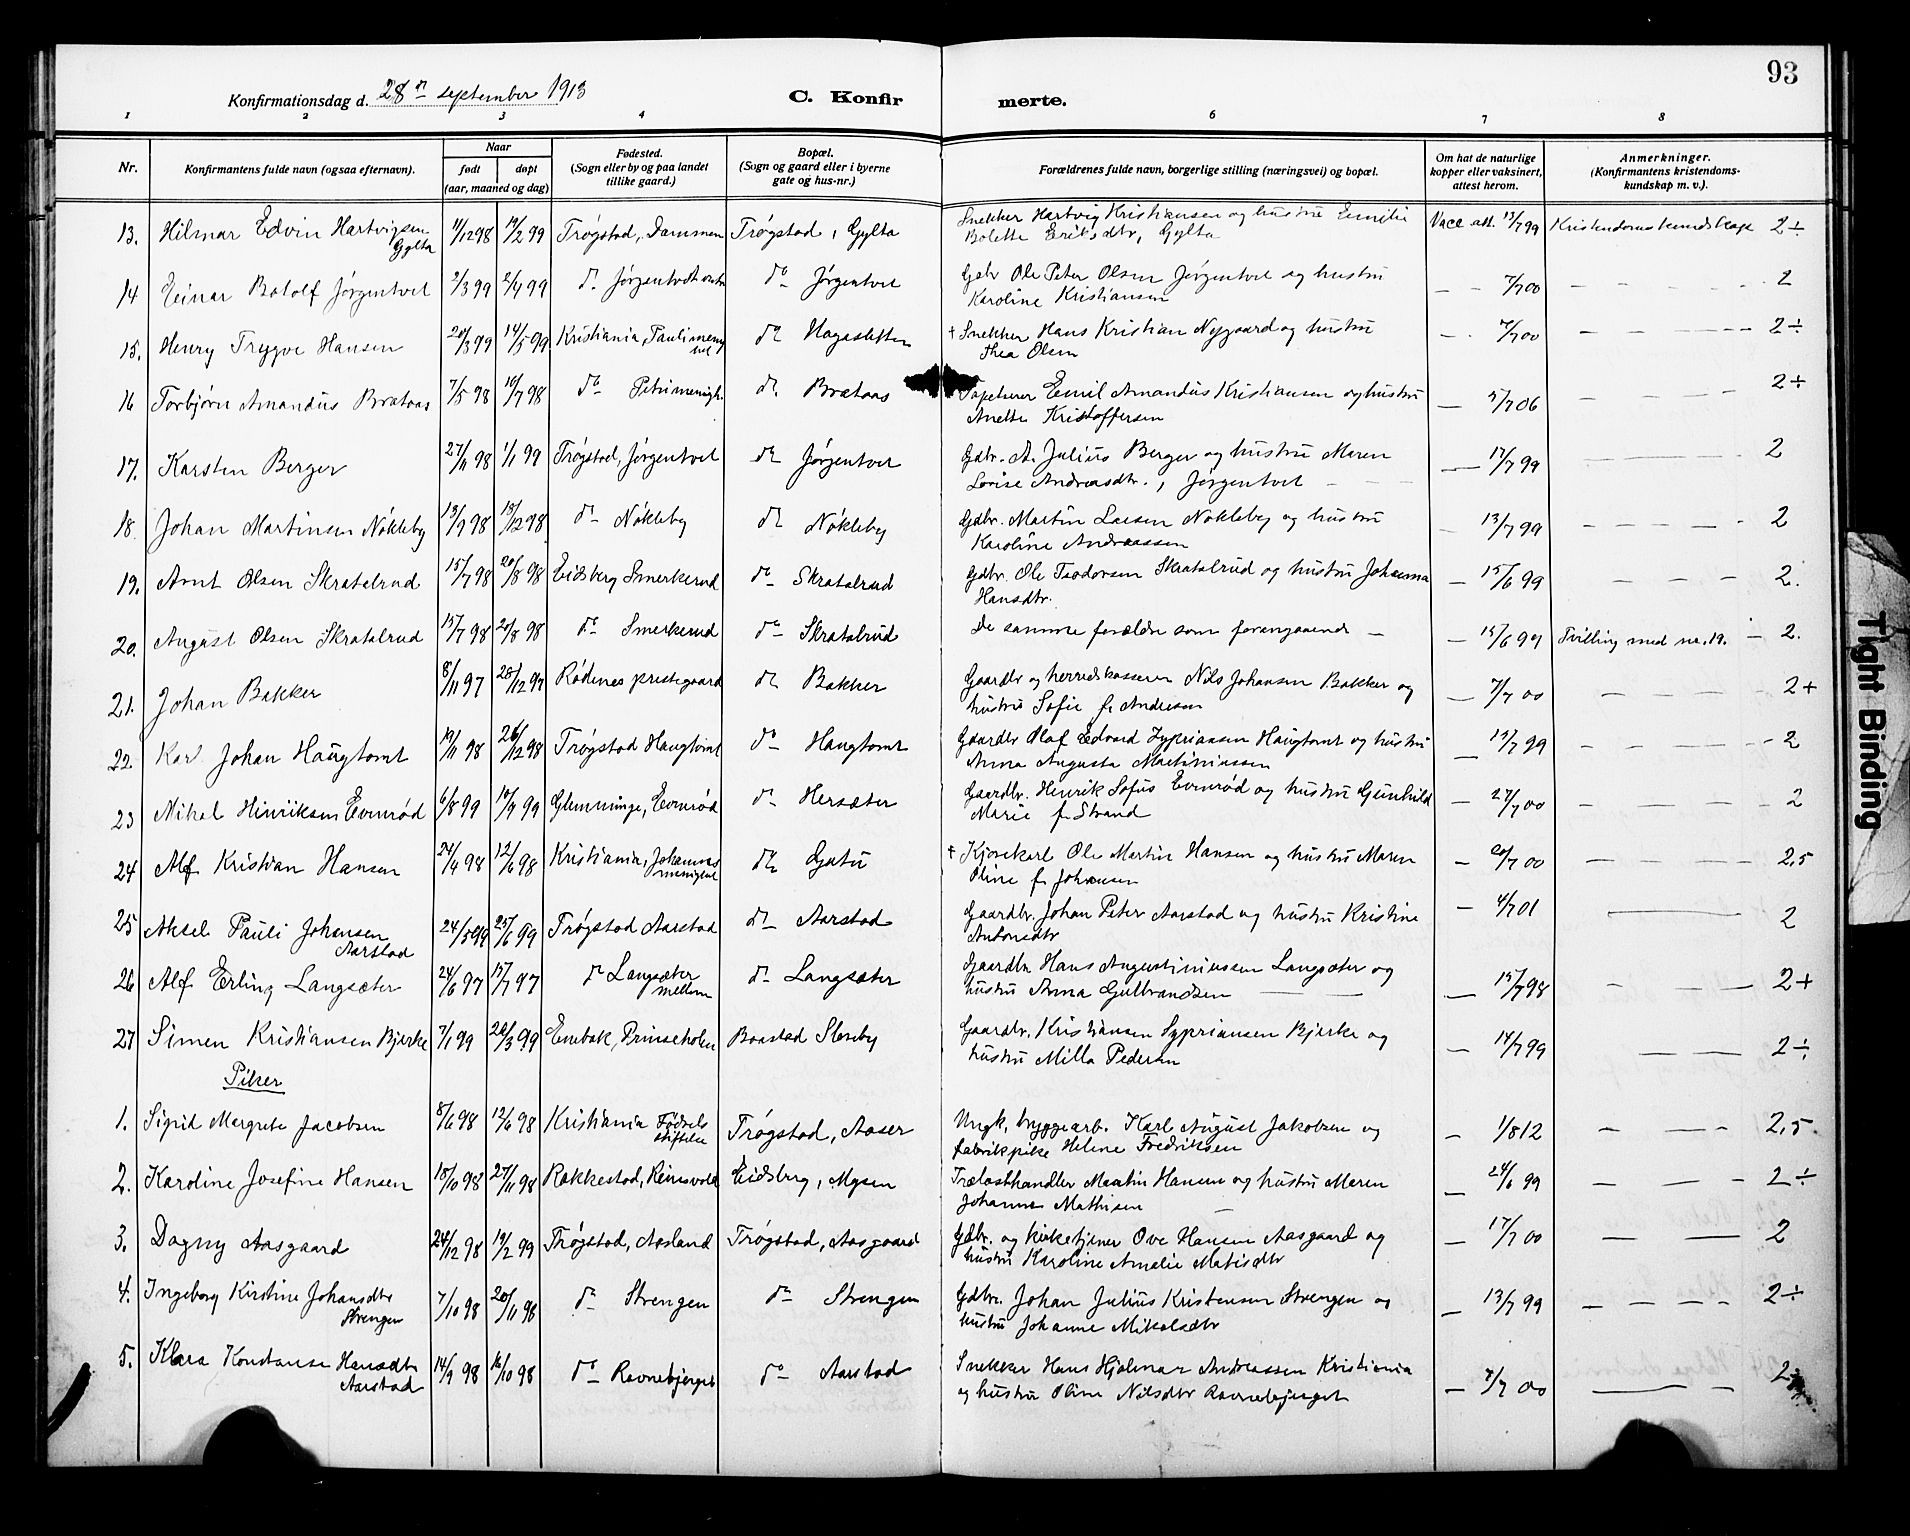 93
Konfirmationsdag d. 28de september 1913
C. Konfir
merte.
1 2 3 4 5 6 7 8
Nr.
Konfirmantens fulde navn (ogsaa efternavn).
Naar
født
døpt
(aar, maaned og dag)
Fødested.
(Sogn eller by og paa landet
tillike gaard.)
Bopæl.
(Sogn og gaard eller i byerne
gate og hus-nr.)
Forældrenes fulde navn, borgerlige stilling (næringsvei) og bopæl.
Om hat de naturlige
kopper eller vaksinert,
attest herom.
Anmerkninger.
(Konfirmantens kristendoms-
kundskap m. v.).
13. Hilmar Edvin Hartvigsen 98 19/2 99 Trøgstad, Dammen Trøgstad, Gylta Snekker Hartvig Kristiansen og hustru Emilie Vacc. att. 13/7 99 Kristendomskundskap 2÷
Gylta Bolette Eriksdtr, Gylta
14 Einar Botolf Jørgentvet 2/3 99 2/4 99 do Jørgentvedt do Jørgentvet Gdbr Ole Peter Olsen Jørgentvet og hustru — 7/7 00 — 2
Karoline Kristiansen
15. Henry Trygve Hansen 20/3 99 14/5 99 Kristiania, Paulimenig do Hagasletten † Snekker Hans Kristian Nygaard og hustru — 7/7 00 — 2÷
Thea Olsen
16 Torbjørn Amandus Brataas 7/5 98 10/7 98 do Petrimenigh. do Brataas Tapetserer Emil Amandus Kristiansen og hustru — 5/7 06 — 2÷
Anette Kristoffersen
17. Karsten Berger 27/11 98 1/1 99 Trøgstad, Jørgentvet do Jørgentvet Gdbr. A. Julius Berger og hustru Maren — 17/7 99 — 2
Lovise Andreasdtr., Jørgentvet — —
18. Johan Martinsen Nøkleby 13/9 98 18/12 98 do Nøkleby do Nøkleby Gdbr. Martin Larsen Nøkleby og hustru — 13/7 99 — 2
Karoline Andreassen
19. Arnt Olsen Skratalrud 15/7 98 20/8 98 Eidsberg Smerkerud do Skratalrud Gdbr. Ole Teodorsen Skratalrud og hustru Johanna — 15/6 99 — 2.
Hansdtr.
20. August Olsen Skratalrud 15/7 98 20/8 98 do Smerkerud do Skratalrud De samme forældre som foregaaende — — 15/6 99 Tvilling med nr. 19. — 2.
21. Johan Bakker 8/11 97 26/12 97 Rødenes prestegaard do Bakker Gaardbr og herredskasserer Nils Johansen Bakker og — 7/7 00 — 2+
hustru Sofie f. Andresen
22. Karl Johan Haugtomt 13/11 98 26/12 98 Trøgstad Haugtomt do Haugtomt Gaardbr Olaf Edvard Zypriansen Haugtomt og hustru — 13/7 99 — 2
Anna Augusta Martiniussen
23 Mikal Hinriksen Evenrød 6/8 99 10/9 99 Glemminge, Evenrød do Hersæter Gaardbr. Henrik Sofus Evenrød og hustru Gunhild — 27/7 00 — 2
Marie f. Strand
24 Alf Kristian Hansen 24/4 98 12/6 98 Kristiania, Johannes do Gatu † Kjørekarl Ole Martin Hansen og hustru Maren — 20/7 00 — 2,5
menighet Oline f. Johansen
25 Aksel Pauli Johansen 24/5 99 25/6 99 Trøgstad Aarstad do Aarstad Gaardbr. Johan Peter Aarstad og hustru Kristine — 4/7 01 — 2
Aarstad Antonsdtr
26 Alf Erling Langsæter 24/6 97 15/7 97 do Langsæter do Langsæter Gaardbr Hans Augustiniussen Langsæter og — 15/7 98 — 2+
mellem hustru Anna Gulbrandsen —
27 Simen Kristiansen Bjerke 7/1 99 26/3 99 Enebak, Prinseholen Baastad Sloreby Gaardbr. Kristiansen Sypriansen Bjerke og — 14/7 99 — 2÷
hustru Milla Pedersen
Piker
1. Sigrid Margrete Jacobsen 8/6 98 12/6 98 Kristiania Fødsels Trøgstad, Aaser Ungk. bryggearb. Karl August Jakobsen og — 1/8 12 — 2,5.
stiftelse fabrikpike Helene Fredriksen
2. Karoline Josefine Hansen 18/10 98 27/11 98 Rakkestad, Reinsvold Eidsberg, Mysen Trælasthandler Martin Hansen og hustru Maren — 24/6 99 — 2÷
Johanne Mathisen
3. Dagny Aasgaard 24/12 98 19/2 99 Trøgstad, Aasland Trøgstad, Aasgaard Gdbr. og kirketjener Ove Hansen Aasgaard og — 17/7 00 — 2
hustru Karoline Amalie Matisdtr
4. Ingeborg Kirstine Johansdtr 7/10 98 20/11 98 do Strengen do Strengen Gdbr. Johan Julius Kristensen Strengen og — 13/7 99 — 2÷
Strengen hustru Johanne Mikalsdtr
5. Klara Konstanse Hansdtr 14/9 98 16/10 98 do Ravnebjerget do Aarstad Snekker Hans Hjalmar Andreassen Kristiania — 7/7 00 — 2
Aarstad og hustru Oline Nilsdtr Ravnebjerget
Tight Binding